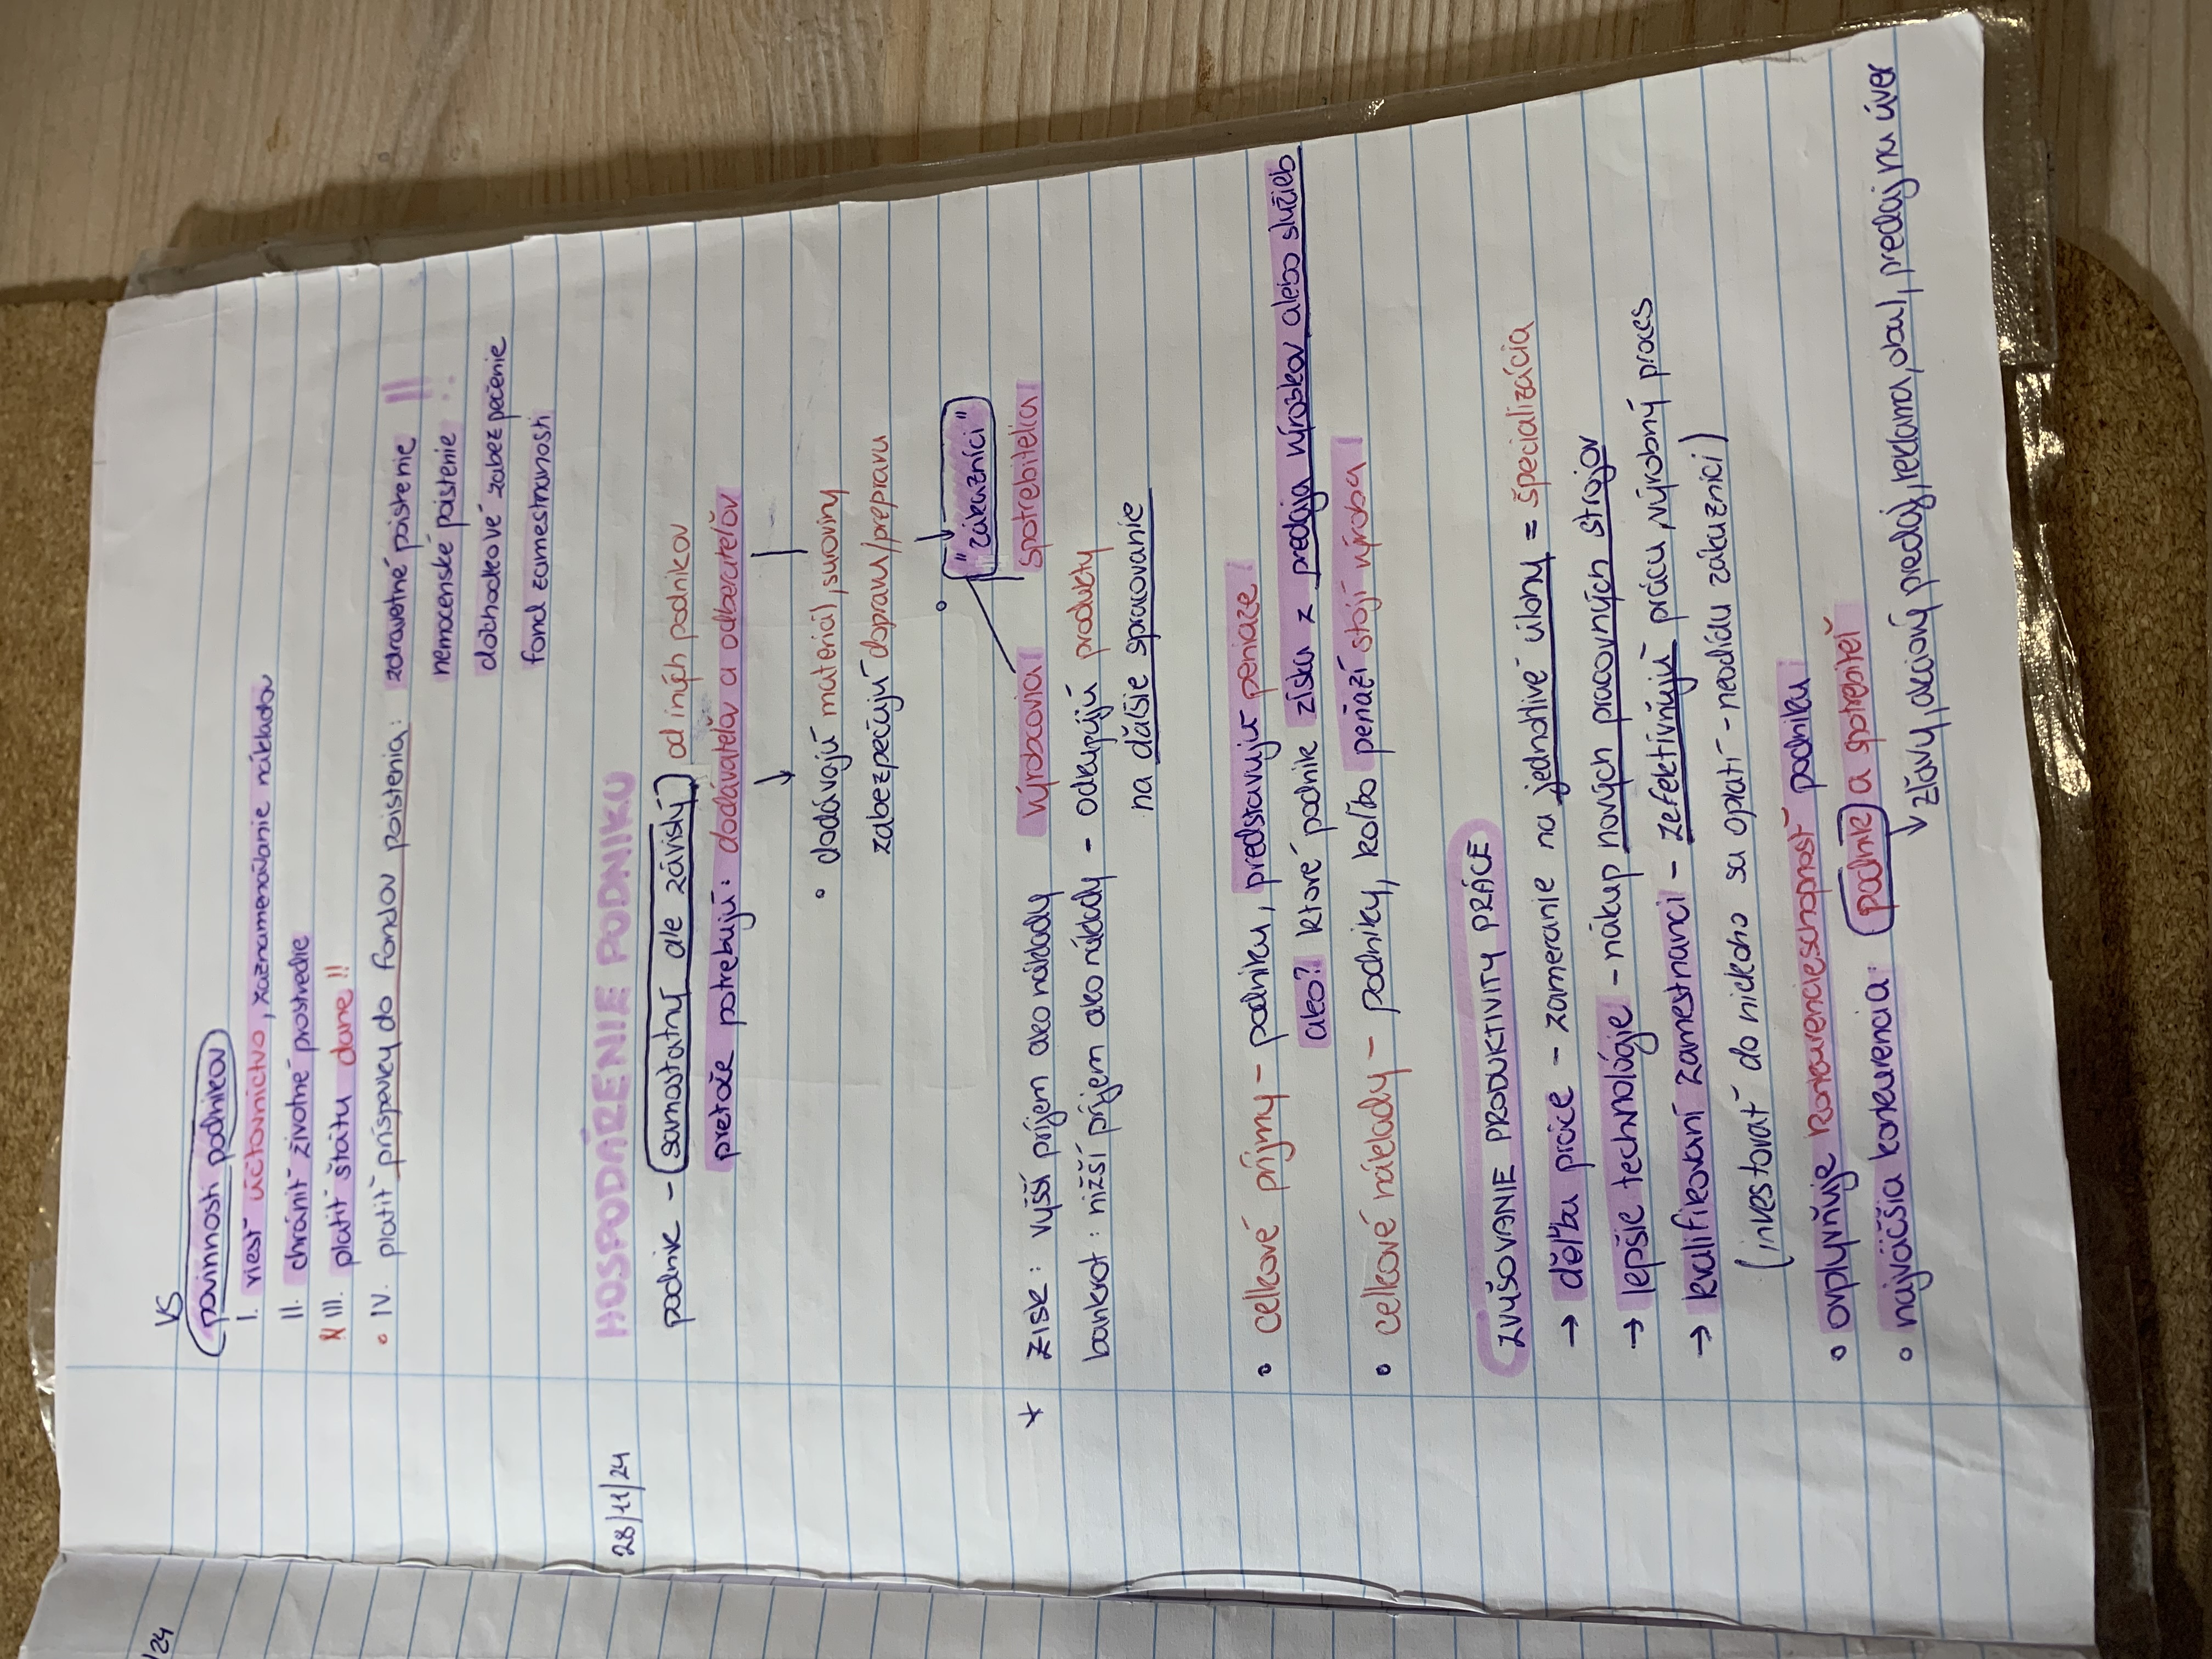 /24
VS
povinnosti podnikov
I. viesť účtovníctvo, zaznamenávanie nákladov
II. chrániť životné prostredie
III. platiť štátu dane !!
• IV. platiť príspevky do fondov poistenia: zdravotné poistenie !!
nemocenské poistenie
dôchodkové zabezpečenie
fond zamestnanosti
28/11/24 HOSPODÁRENIE PODNIKU
podnik - samostatný ale závislý od iných podnikov
pretože potrebujú: dodávateľov a odberateľov
↓
• dodávajú materiál, suroviny
zabezpečujú dopravu/prepravu
↓
• "zákazníci"
* zisk: vyšší príjem ako náklady výrobcovia spotrebitelia
bankrot: nižší príjem ako náklady - odkupujú produkty
na ďalšie spracovanie
• celkové príjmy - podniku, predstavujú peniaze
ako? ktoré podnik získa z predaja výrobkov alebo služieb
• celkové náklady - podniky, koľko peňazí stojí výroba
ZVYŠOVANIE PRODUKTIVITY PRÁCE
→ deľba práce - zameranie na jednotlivé úlohy = špecializácia
→ lepšie technológie - nákup nových pracovných strojov
→ kvalifikovaní zamestnanci - zefektívňujú prácu, výrobný proces
(investovať do niekoho sa oplatí - neodídu zákazníci)
• ovplyvňuje konkurencieschopnosť podniku
• najväčšia konkurencia: podnik a spotrebiteľ
↓ zľavy, akciový predaj, reklama, obal, predaj na úver